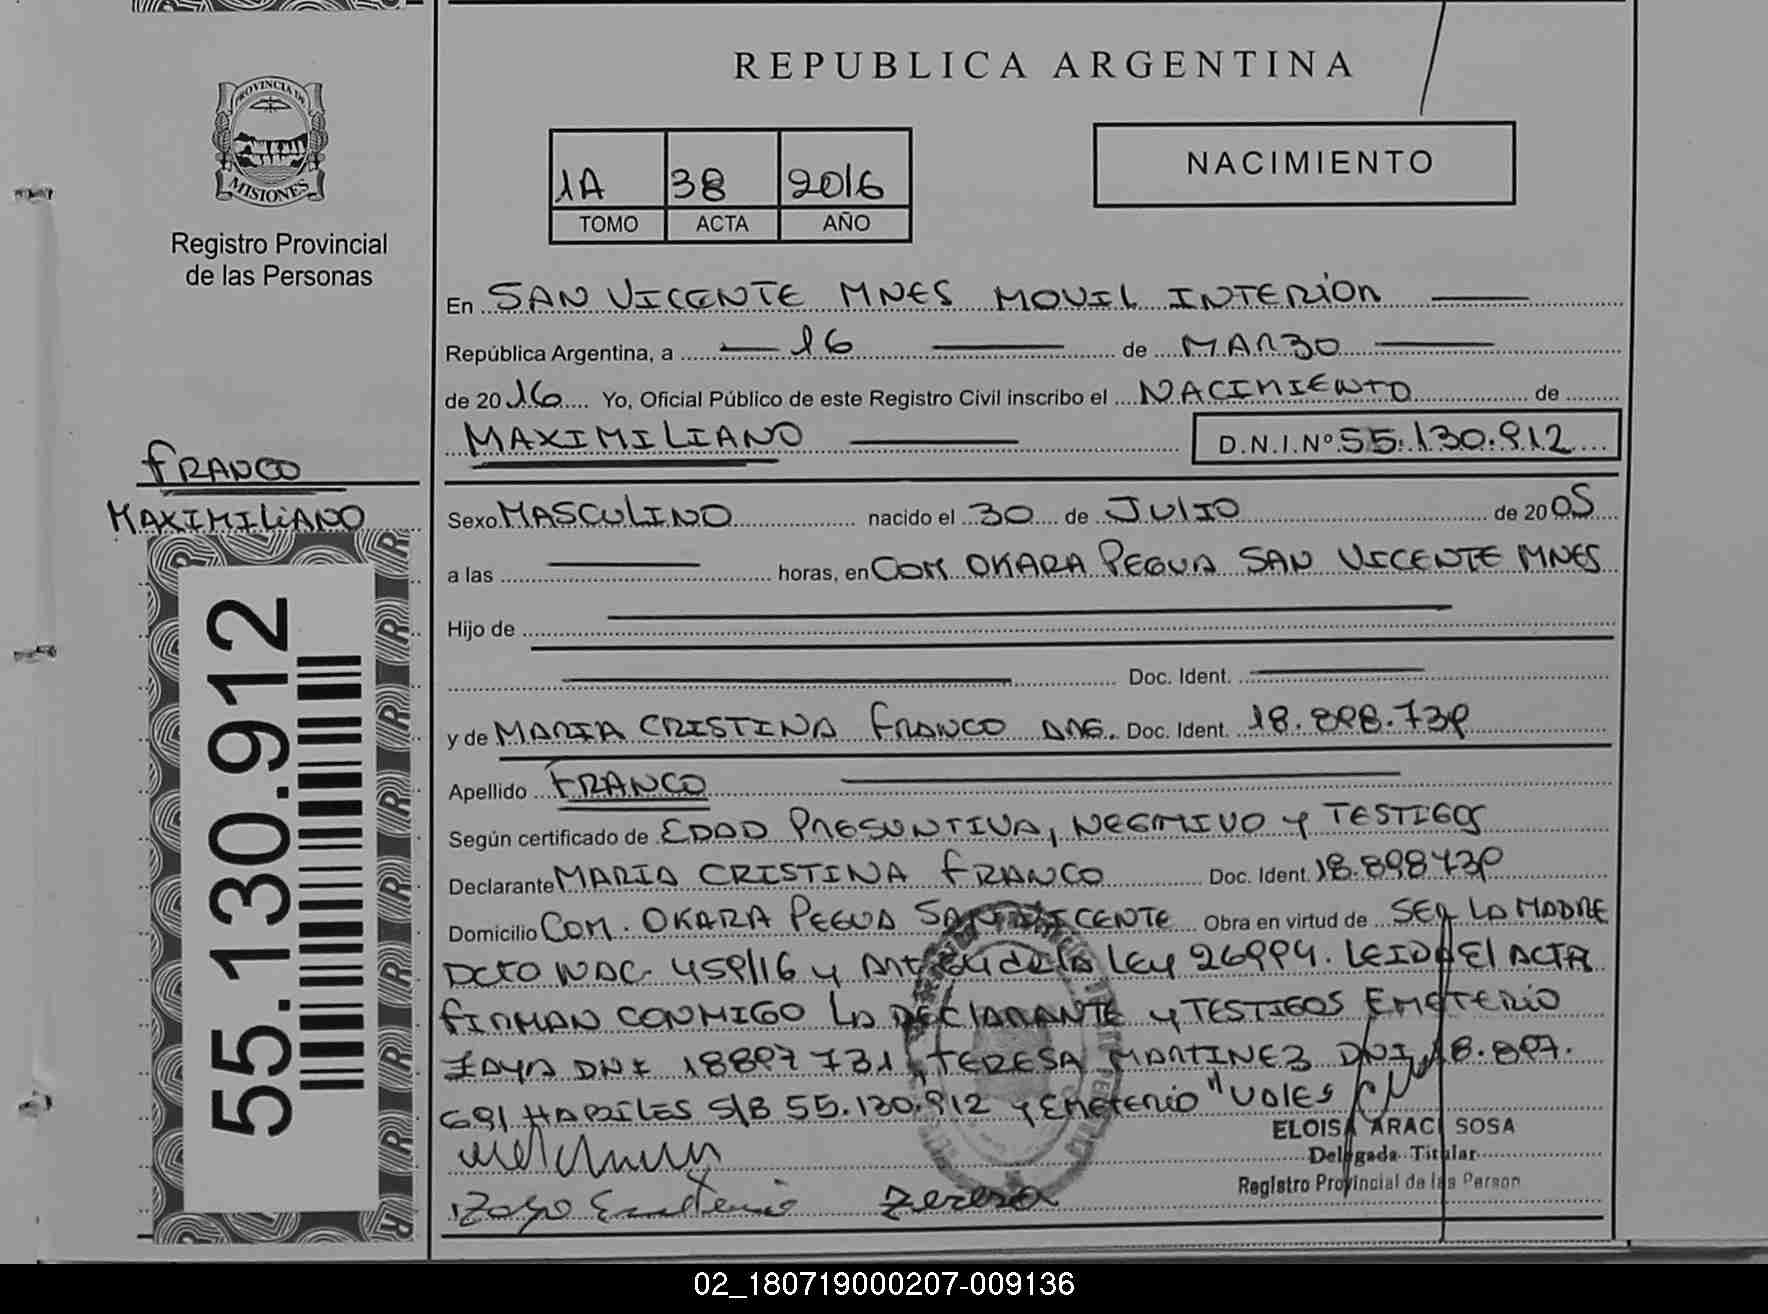 REPUBLICA ARGENTINA
PROVINCIA DE
MISIONES
Registro Provincial
de las Personas
1A 38 2016
TOMO ACTA AÑO
NACIMIENTO
En SAN VICENTE MNES MOVIL INTERIOR
República Argentina, a 16 de MARZO
de 2016 Yo, Oficial Público de este Registro Civil inscribo el NACIMIENTO de
MAXIMILIANO D.N.I.Nº 55.130.912
FRANCO
MAXIMILIANO
55.130.912
Sexo MASCULINO nacido el 30 de JULIO de 2005
a las horas, en COM OKARA PEGUA SAN VICENTE MNES
Hijo de
Doc. Ident.
y de MARIA CRISTINA FRANCO ARG. Doc. Ident. 18.898.739
Apellido FRANCO
Según certificado de EDAD PRESUNTIVA, NEGATIVO y TESTIGOS
Declarante MARIA CRISTINA FRANCO Doc. Ident. 18.898739
Domicilio COM. OKARA PEGUA SAN VICENTE Obra en virtud de SER LA MADRE
DCTO NAC 459/16 y Art de la LEY 26994. LEIDA El ACTA
FIRMAN CONMIGO LA DECLARANTE y TESTIGOS EMETERIO
DNI 18897731 TERESA MARTINEZ DNI 18.897.
691 HABILES S/B 55.130.912 y EMETERIO "VALES
ELOISA ARACI SOSA
Delegada Titular
Registro Provincial de las Person
Teresa
02_180719000207-009136